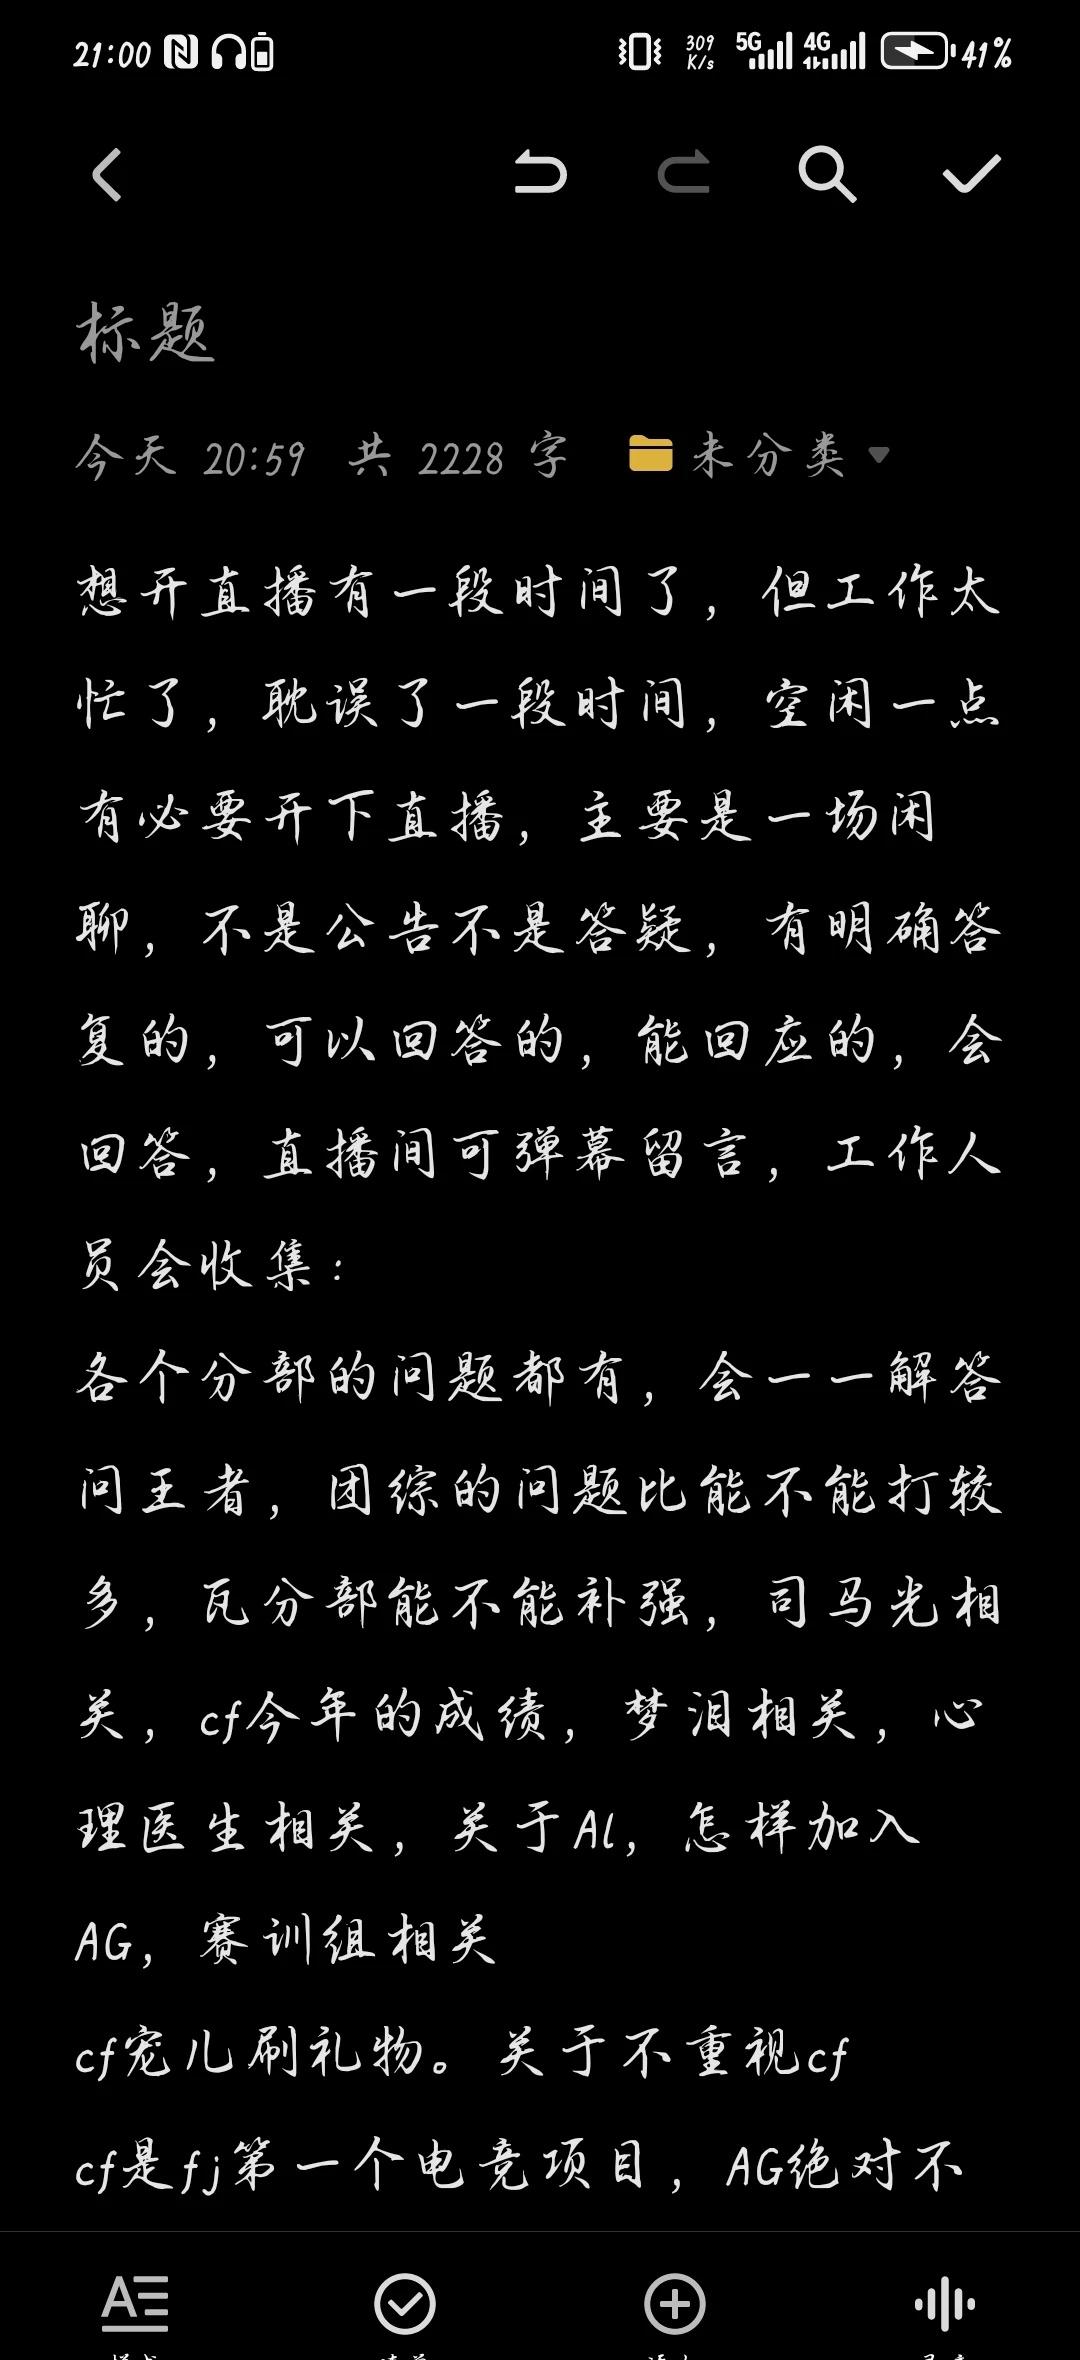 21:00 309 K/s 5G 4G 41%
标题
今天 20:59 共 2228 字 未分类
想开直播有一段时间了，但工作太
忙了，耽误了一段时间，空闲一点
有必要开下直播，主要是一场闲
聊，不是公告不是答疑，有明确答
复的，可以回答的，能回应的，会
回答，直播间可弹幕留言，工作人
员会收集：
各个分部的问题都有，会一一解答
问王者，团综的问题比能不能打较
多，瓦分部能不能补强，司马光相
关，cf今年的成绩，梦泪相关，心
理医生相关，关于Al，怎样加入
AG，赛训组相关
cf宠儿刷礼物。关于不重视cf
cf是fj第一个电竞项目，AG绝对不